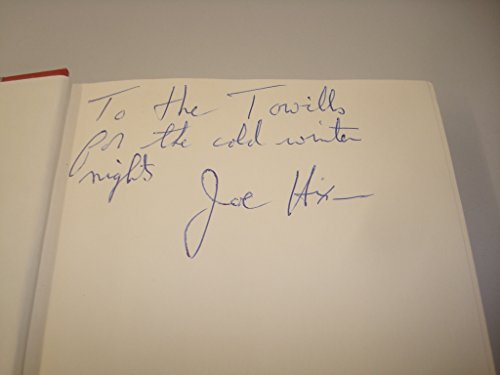 To the Towills
for the cold winter
nights
Joe Hixon